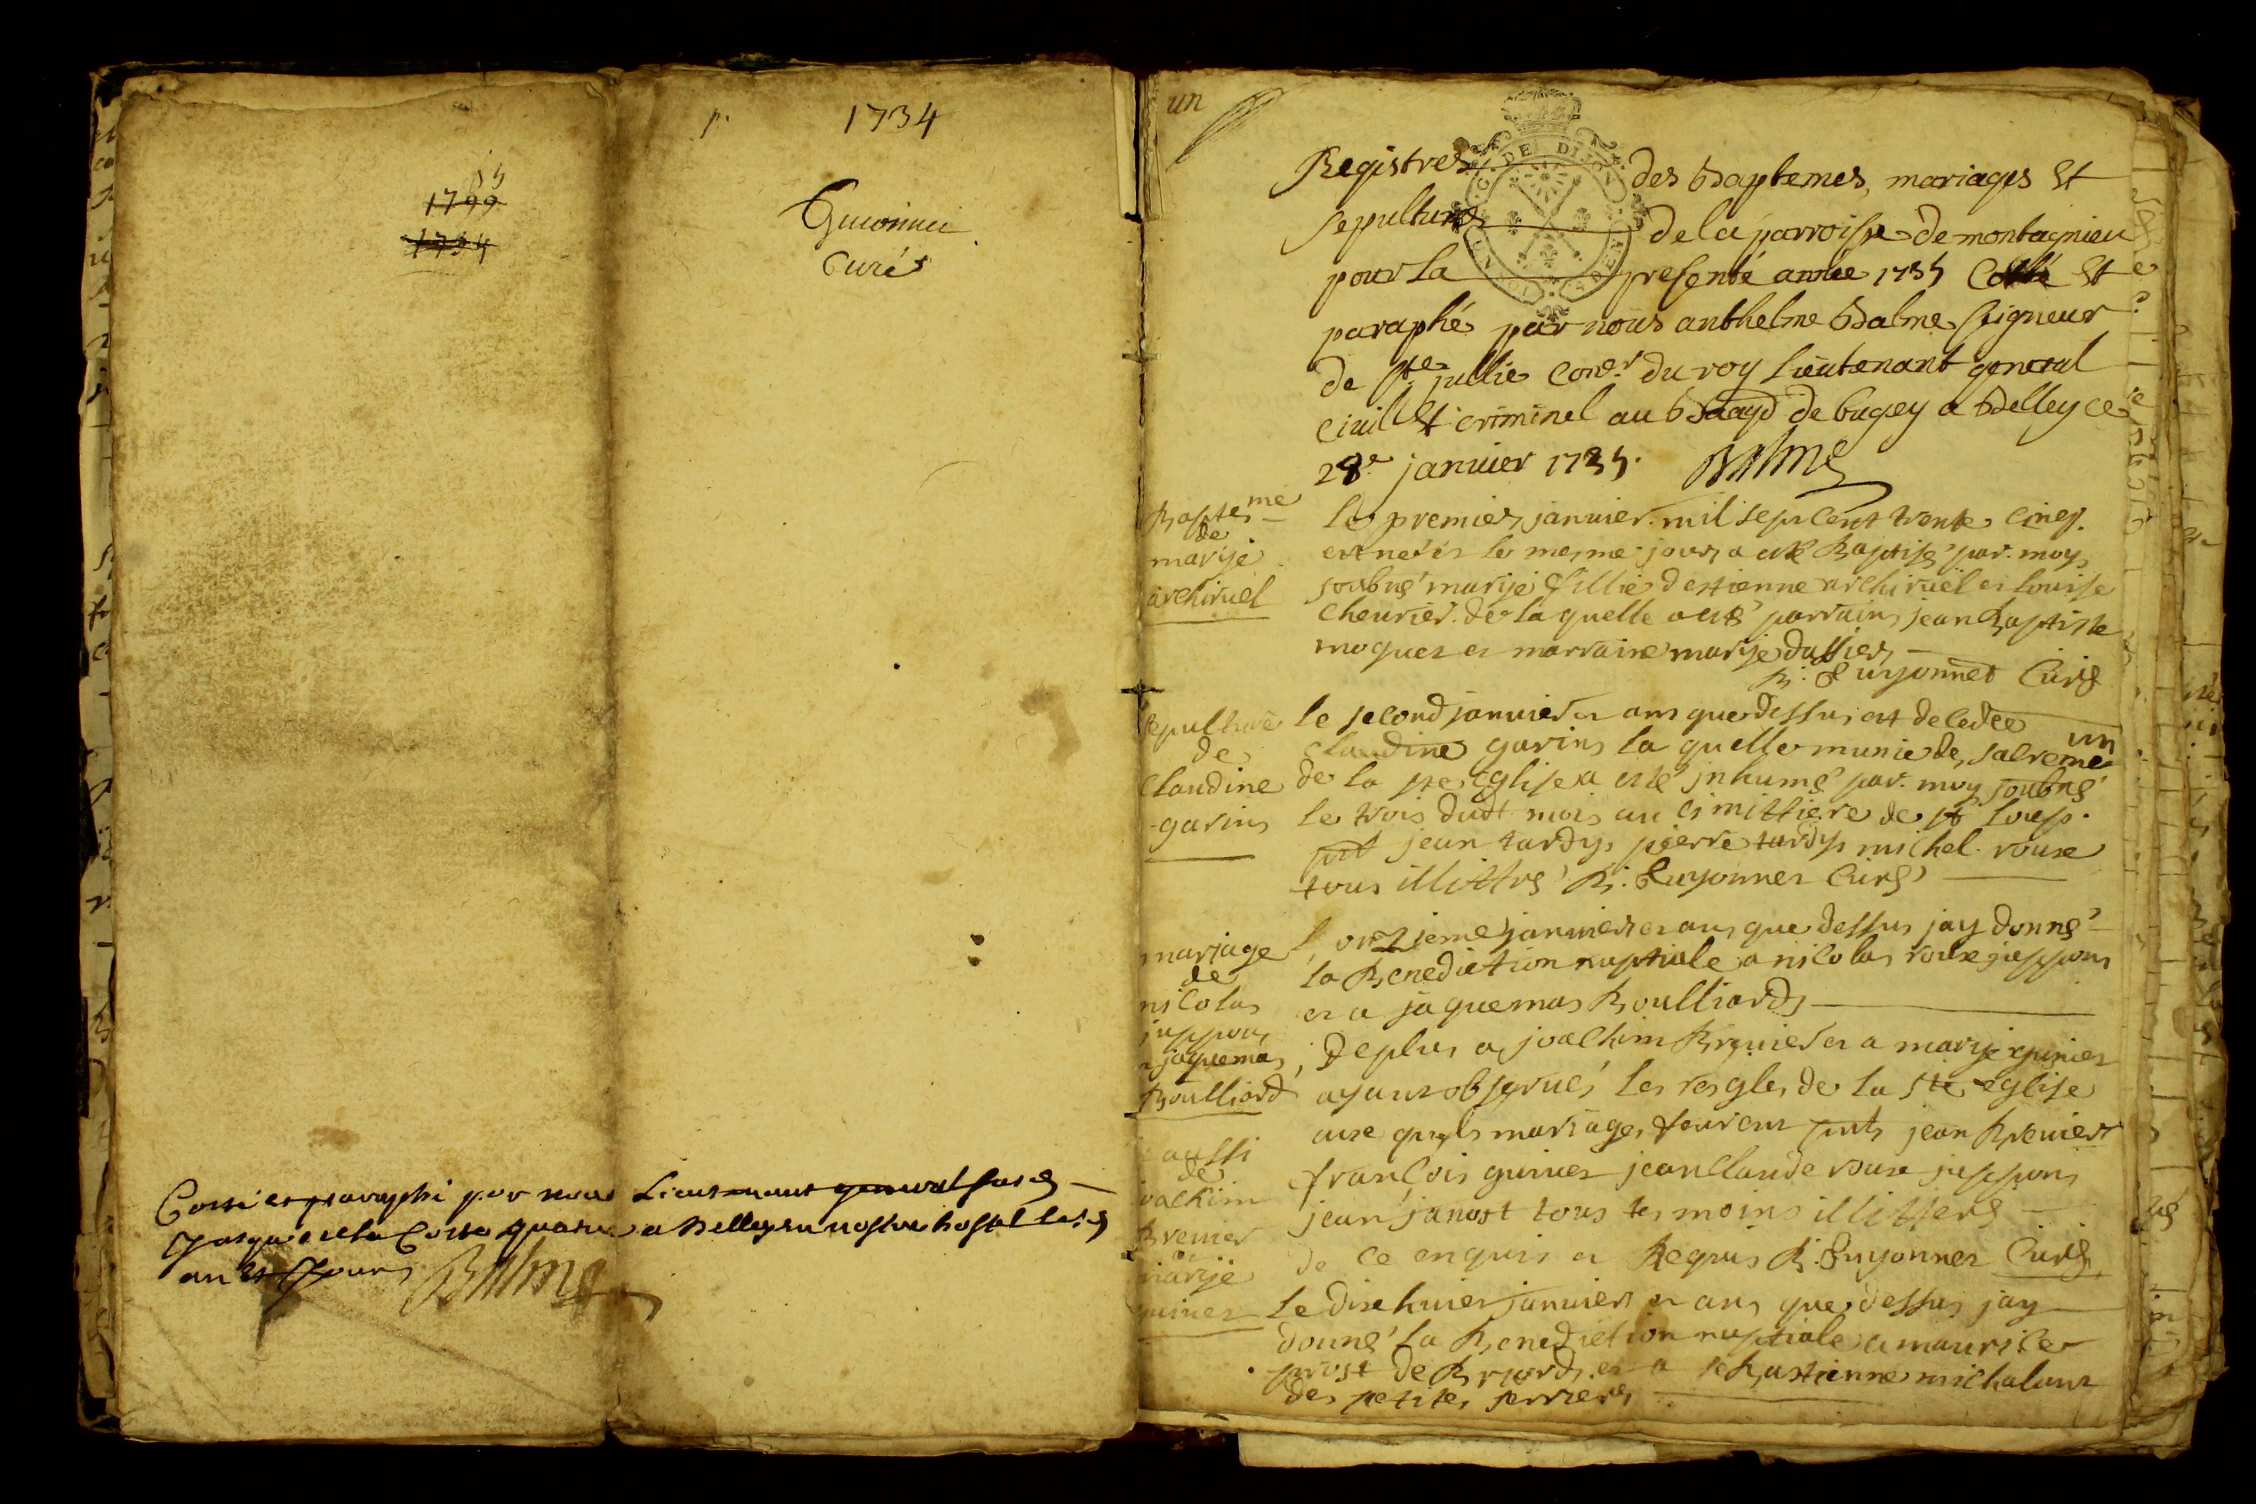 1734
1734
Guionnet
Curés
Cotté et paraphé par nous Lieutenant general
a Belley en nostre hostel
an et jour Balme
un
Registres des Baptemes, mariages Et
sepultures de la parroisse de montagnieu
pour la presente année 1735 Cotté Et
paraphé par nous anthelme Balme seigneur
de Ste jullie Coner du roy Lieutenant general
civil Et criminel au de bugey a Belley ce
28e janvier 1735. Balme
GEN DE DIJON
Baptesme
de
marije
archiruel
le premier janvier mil sept cent trente cinq
est né et le mesme jour a esté Baptisé par moy
soubné marije fillie destienne archiruel et louise
cheurier de laquelle a esté parrain jean Baptiste
moquet et marraine marije dussier
B. Guyonnet Curé
sepulture
de
Claudine
garins
le second janvier et ans que dessus est decedée un
Claudine garins la quelle munie des sacreme
de la ste Eglise a esté jnhumé par moy soubné
le trois dudt mois au cimittiere de st Loup.
pnt jean tardy pierre tardy michel roux
tous illittré B. Guyonnet Curé
mariage
de
nicolas
juppons
et jaquemas
Boulliard
l'onzieme janvier et ans que dessus jay donné
la Benediction nuptiale a nicolas roux juppons
et a jaquemas Boulliard
De plus a joachim Brenier et a marije
ayant observé les regles de la Ste eglise
aux quels mariages furent pnts jean Brenier
francois guinet jean Claude roux juppons
jean janost tous tesmoins illitteré
de ce enquis et Requis B. Guyonnet Curé
aussi
de
joachim
Brenier
et
marije
guinet
Le dix huict janvier et ans que dessus jay
donné la Benediction nuptiale a maurice
prost de Briord et a sebastienne michalant
des petites serrieres